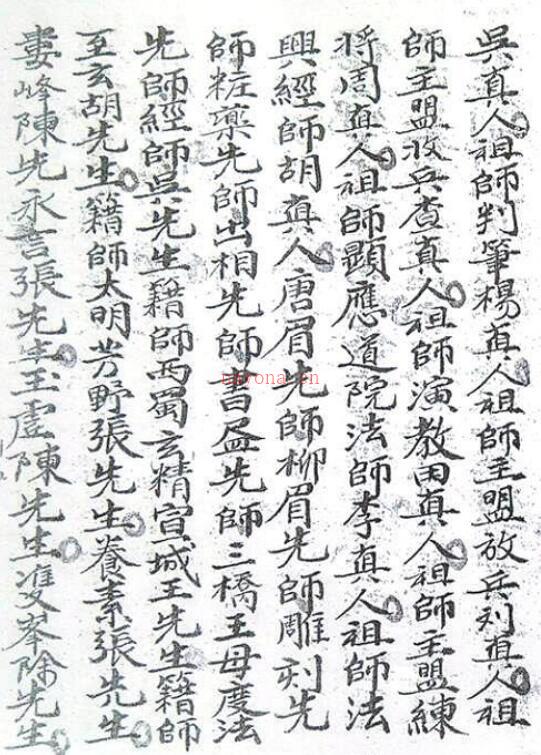 吳真人祖師判筆楊真人祖師主盟放兵刘真人祖
師主盟收兵查真人祖師演教田真人祖師主盟練
将周真人祖師顯應道院法師李真人祖師法
興經師胡真人唐眉先師柳眉先師雕刻先
師粧藥先師出相先師書盈先師三橋王母度法
先師經師吳先生籍師西蜀玄精宣城王先生籍師
至玄胡先生籍師太明芳野張先生養素張先生
婁峰陳先永言張先生玉虛陳先生雙峯除先生